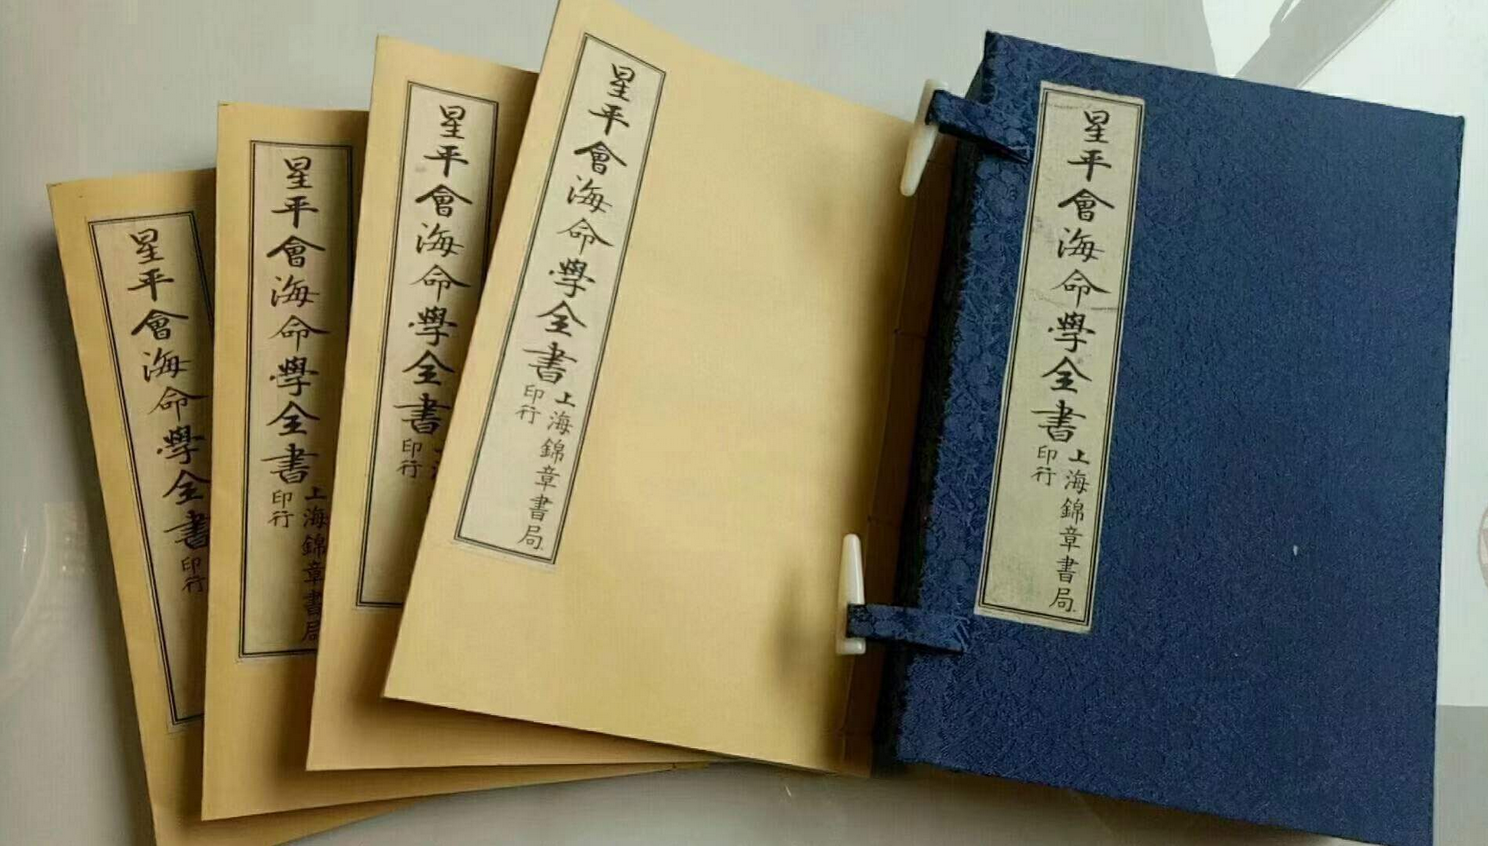 星平會海命學全書
印行
星平會海命學全書
上海錦章書局
印行
星平會海命學全書
上海
印行
星平會海命學全書
上海錦章書局
印行
星平會海命學全書
上海錦章書局
印行